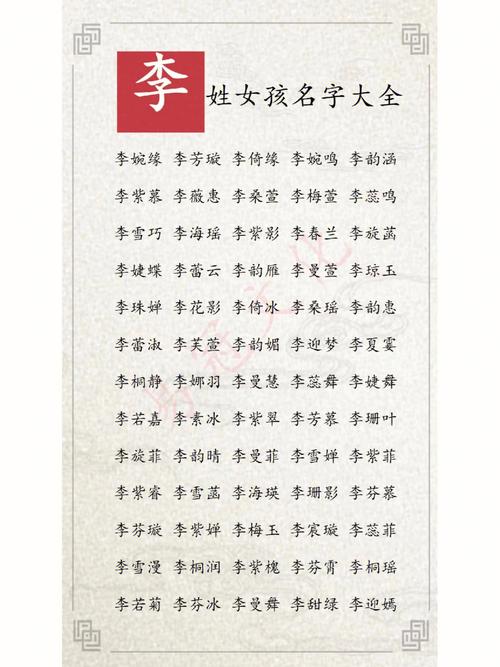 李姓女孩名字大全
李婉缘 李芳璇 李倚缘 李婉鸣 李韵涵
李紫慕 李薇惠 李桑萱 李梅萱 李蕊鸣
李雪巧 李海瑶 李紫影 李春兰 李旋菡
李婕蝶 李蕾云 李韵雁 李曼萱 李琼玉
李珠婵 李花影 李倚冰 李桑瑶 李韵惠
李蕾淑 李芙萱 李韵媚 李迎梦 李夏霎
李桐静 李娜羽 李曼慧 李蕊舞 李婕舞
李若嘉 李素冰 李紫翠 李芳慕 李珊叶
李旋菲 李韵晴 李曼菲 李雪婵 李紫菲
李紫睿 李雪菡 李海瑛 李珊影 李芬慕
李芬璇 李紫婵 李梅玉 李宸璇 李蕊菲
李雪漫 李桐润 李紫槐 李芬霄 李桐瑶
李若菊 李芬冰 李曼舞 李甜绿 李迎嫣